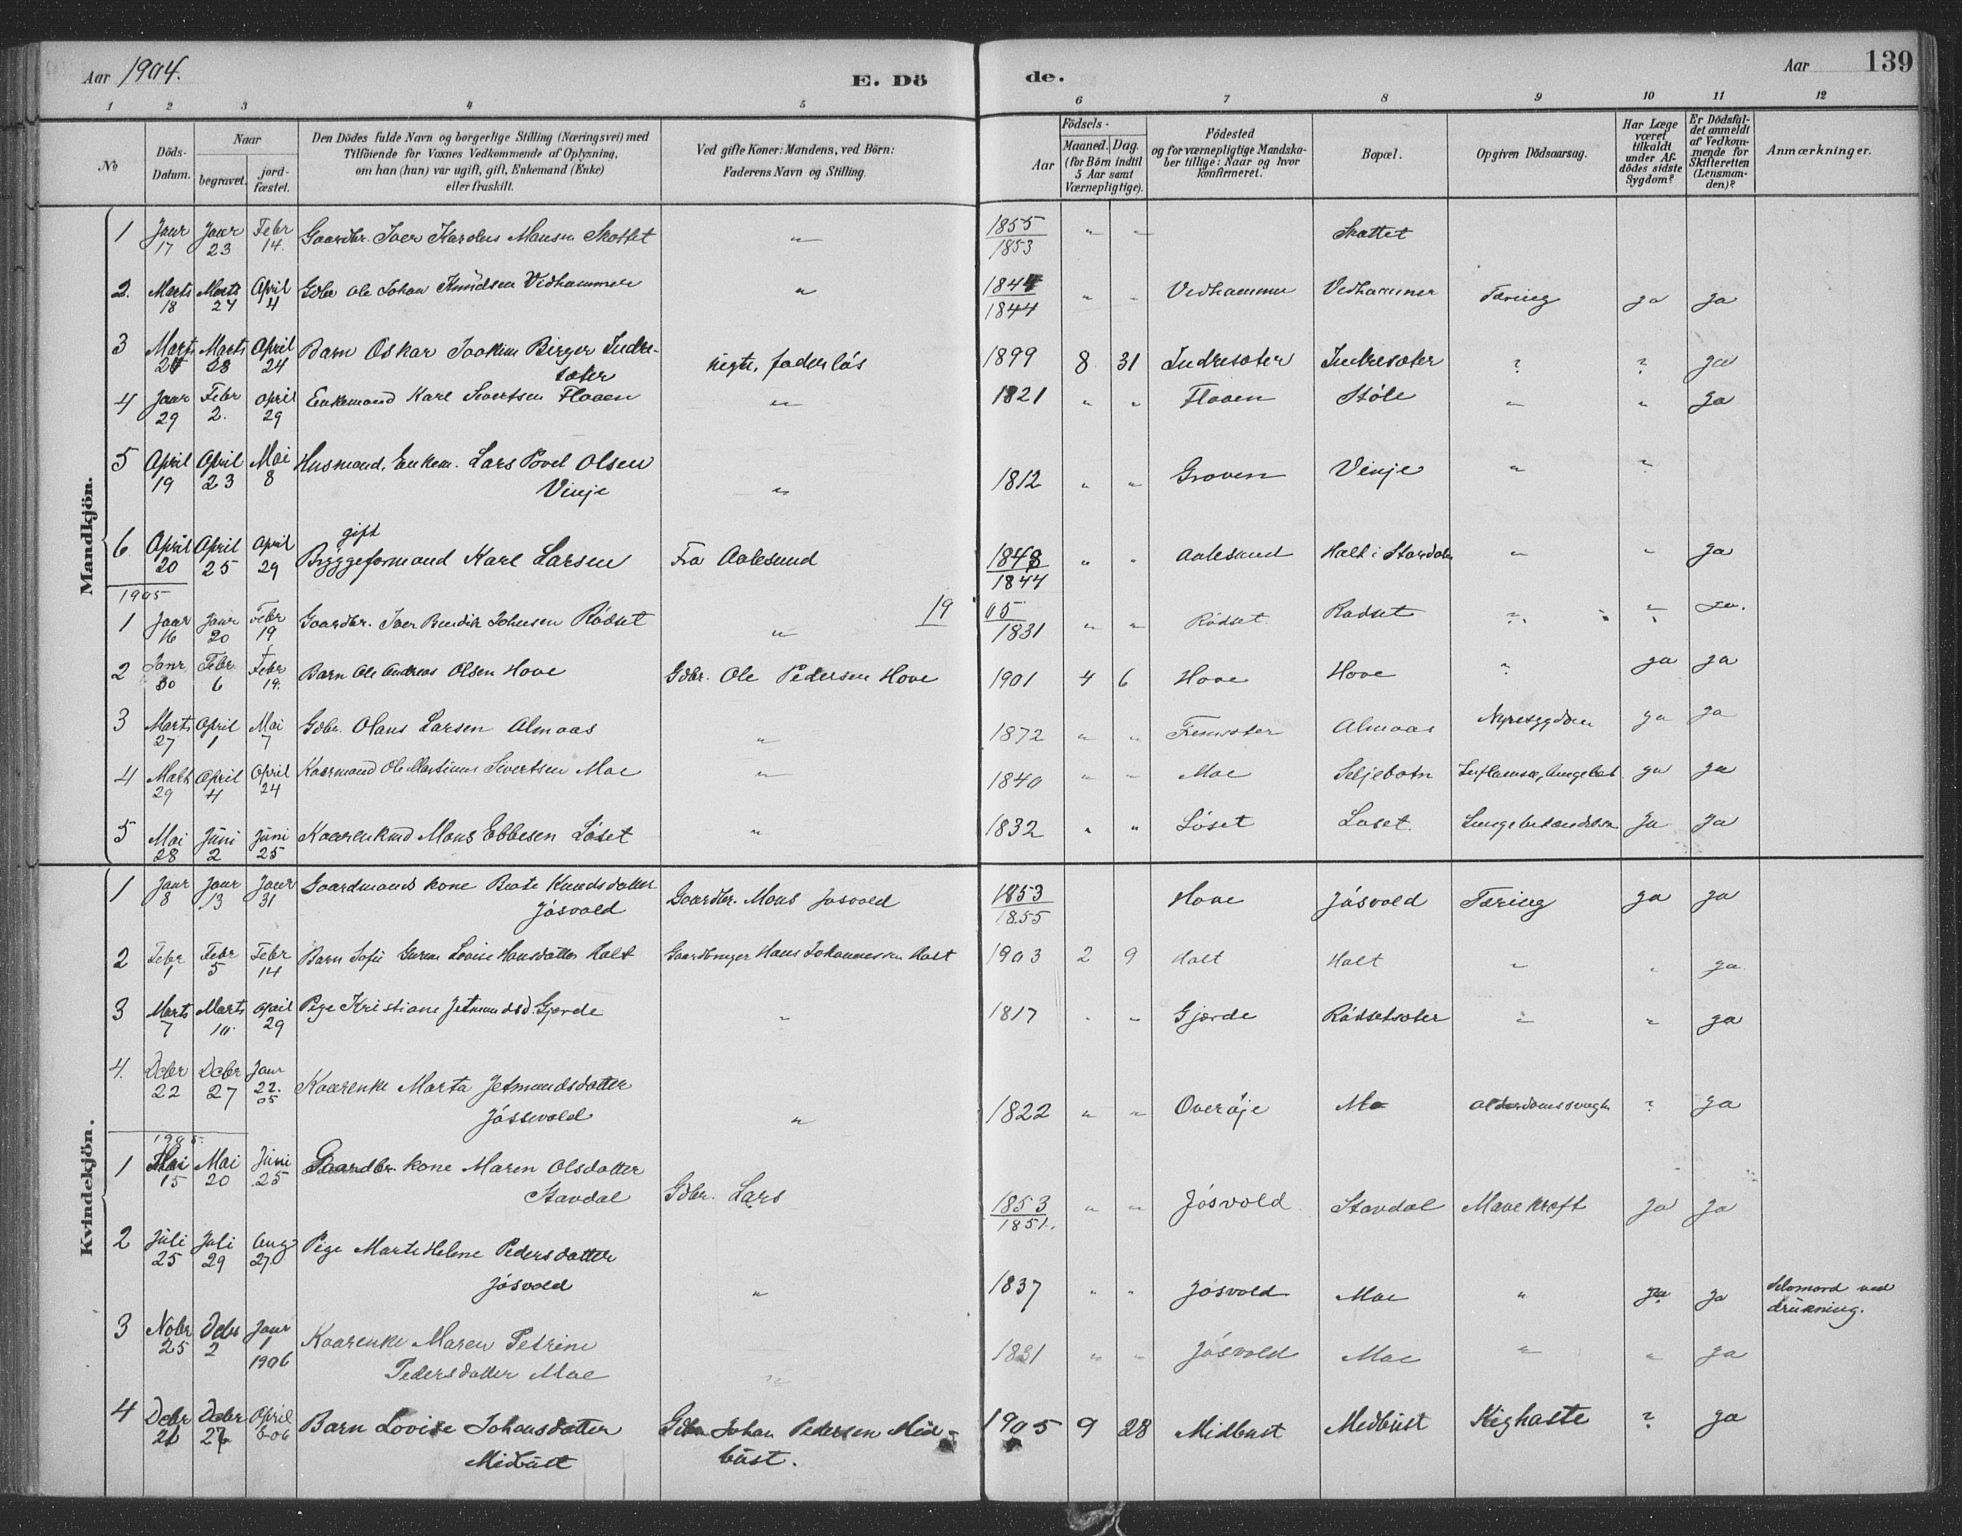 Aar 1904.
E. Dö
de.
Aar
139
1 2 3 4 5 6 7 8 9 10 11 12
No
Döds-Datum.
Naar
begravet.
jord-fæstet.
Den Dödes fulde Navn og borgerlige Stilling (Næringsvei) med
Tilföiende for Voxnes Vedkommende af Oplysning,
om han (hun) var ugift, gift, Enkemand (Enke)
eller fraskilt.
Ved gifte Koner: Mandens, ved Börn:
Faderens Navn og Stilling.
Födsels-
Aar
Maaned. Dag.
(for Börn indtil
5 Aar samt
Værnepligtige).
Födested
og for værnepligtige Mandska-
ber tillige: Naar og hvor
konfirmeret.
Bopæl.
Opgiven Dödsaarsag.
Har Læge
været
tilkaldt
under Af-
dödes sidste
Sygdom?
Er Dödsfal-
det anmeldt
af Vedkom-
mende for
Skifteretten
(Lensman-
den)?
Anmærkninger.
Mandkjön.
1 Janr 17 Janr 23 Febr 14. Gaardbr. Iver Karolus Monsen Skottet " 1855 1853 " " Skottet
2. Marts 18 Marts 24 April 4 Gdbr Ole Johan Knudsen Vedhammer " 1844 " " Vedhammer Vedhammer Tæring ja ja
3 Marts Marts 28 April 24 Barn Oskar Joakim Birger Indre-
sæter
faderløs 1899 8 31 Indresæter Indresæter ? ? ja
4 Janr 29 Febr 2. April 29 Enkemand Karl Sivertsen Floven " 1821 " " Floven Støle " " Ja
5 April 19 April 23 Mai 8 Husmand, Enkem. Lars Povel Olsen
Vinje " 1812 " " Groven Vinje " "
6 April 20 April 25 April 29 gift
Byggeformand Karl Larsen Fra Aalesund 1848 1844 " " Aalesund Holt i Stavdal " " ja
1905
1 Janr 16 Janr 20 Febr 19 Gaardbr. Iver Bendik Johnsen Rødset " 1905 1831 " " Rødset Rødset " " ja.
2 Janr 30 Febr 6 Febr 19. Barn Ole Andreas Olsen Hove Gdbr. Ole Pedersen Hove 1901 4 6 Hove Hove " ja ja
3 Marts 27 April 1 Mai 7 Gdbr. Olaus Larsen Almaas " 1872 " " Almaas Nyresygdom ja ja
4 29 April 4 April 24 Kaarmand Ole Martinus Sivertsen Moe " 1840 " " Moe Seljebotn ja ja
5 Mai 28 Juni 2 Juni 25 Mons Ebbesen Løset " 1832 " " Løset Løset. Ja Ja
Kvindekjön.
1 Janr 8 Janr 13 Janr 31 Gaardmands kone Beate Knudsdatter
Jøsvold Gaardbr. Mons Jøsvold 1853 1855 Hove Jøsvold Tæring ja ja
2 Febr 1 Febr 5 Febr 14 Barn Sofie Lovise Hansdatter Holt Gaardbruger Hans Johannessen Holt 1903 2 9 Holt Holt " " ja.
3 Marts 7 Marts 10. April 29 Pige Kristiane Jetmundsd. Gjærde " 1817 " " Gjærde Rødsetsæter " " ja
4. Debr 22 Debr 27 Janr 22. 05 Kaarenke Marta Jetmundsdatter
Jøssevold " 1822 " " Overøje Mo Alderdomssvagh ? ja
1905.
1 Mai 15 Mai 20 Juni 25 Gaardbr. kone Maren Olsdatter
Stavdal Gdbr. Lars 1853 1851. " " Jøsvold Stavdal Mavekræft ja ja
2 Juli 25 Juli 29 Aug 27. Pige Marte Helene Pedersdatter
Jøsvold " 1837 " " Jøsvold Moe " ja ja Selvmord ved
drukning.
3 Nobr 25 Debr 2 Janr 1 1906 Kaarenke Maren Petrine
Pedersdatter Moe " 1831 " " Jøsvold Moe " " ja
4 Debr Debr April 6-06 Barn Lovise Johansdatter
Midbust Gdbr Johan Pedersen Mid-
bust. 1905 9 28 Midbust Midbust Kighoste ? ja